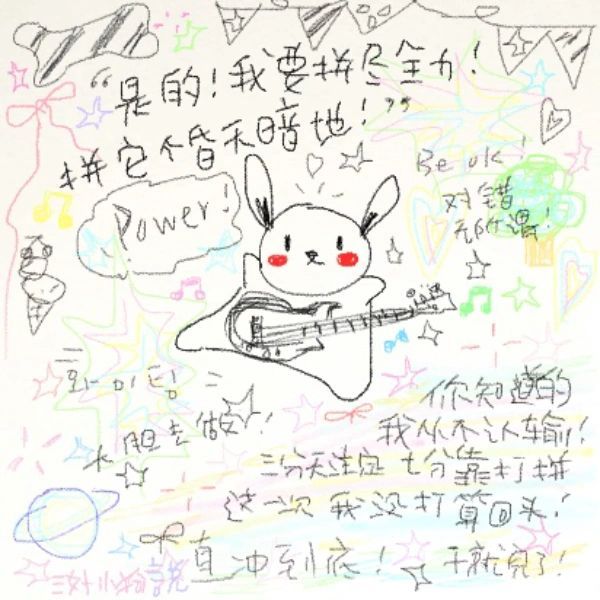 “是的!我要拼尽全力!
拼它个昏天暗地!”
Power!
Be ok!
对错
无所谓!
화이팅
大胆去做!
你知道的
我从不认输!
三分天注定 七分靠打拼
这一次 我没打算回头!
直冲到底! 干就完了!
三好小狗言说